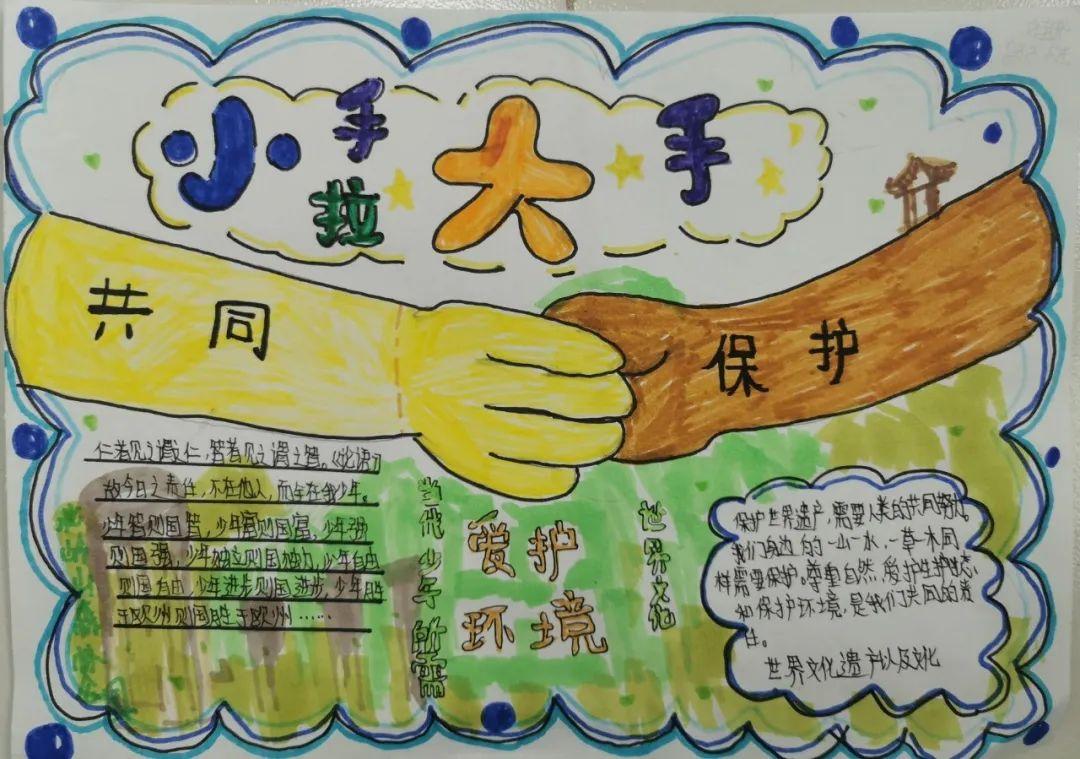 小手拉大手
共同
保护
仁者见之谓之仁，智者见之谓之智。《论语》
故今日之责任，不在他人，而全在我少年。
少年智则国智，少年富则国富，少年强
则国强，少年独立则国独立，少年自由
则国自由，少年进步则国进步，少年胜
于欧洲则国胜于欧洲……
少年
爱护
环境
世界文化
保护世界遗产，需要人类的共同努力。
我们身边的一山一水，一草一木同
样需要保护。尊重自然，爱护生护生态，
和保护环境，是我们共同的责
任。
世界文化遗产以及文化